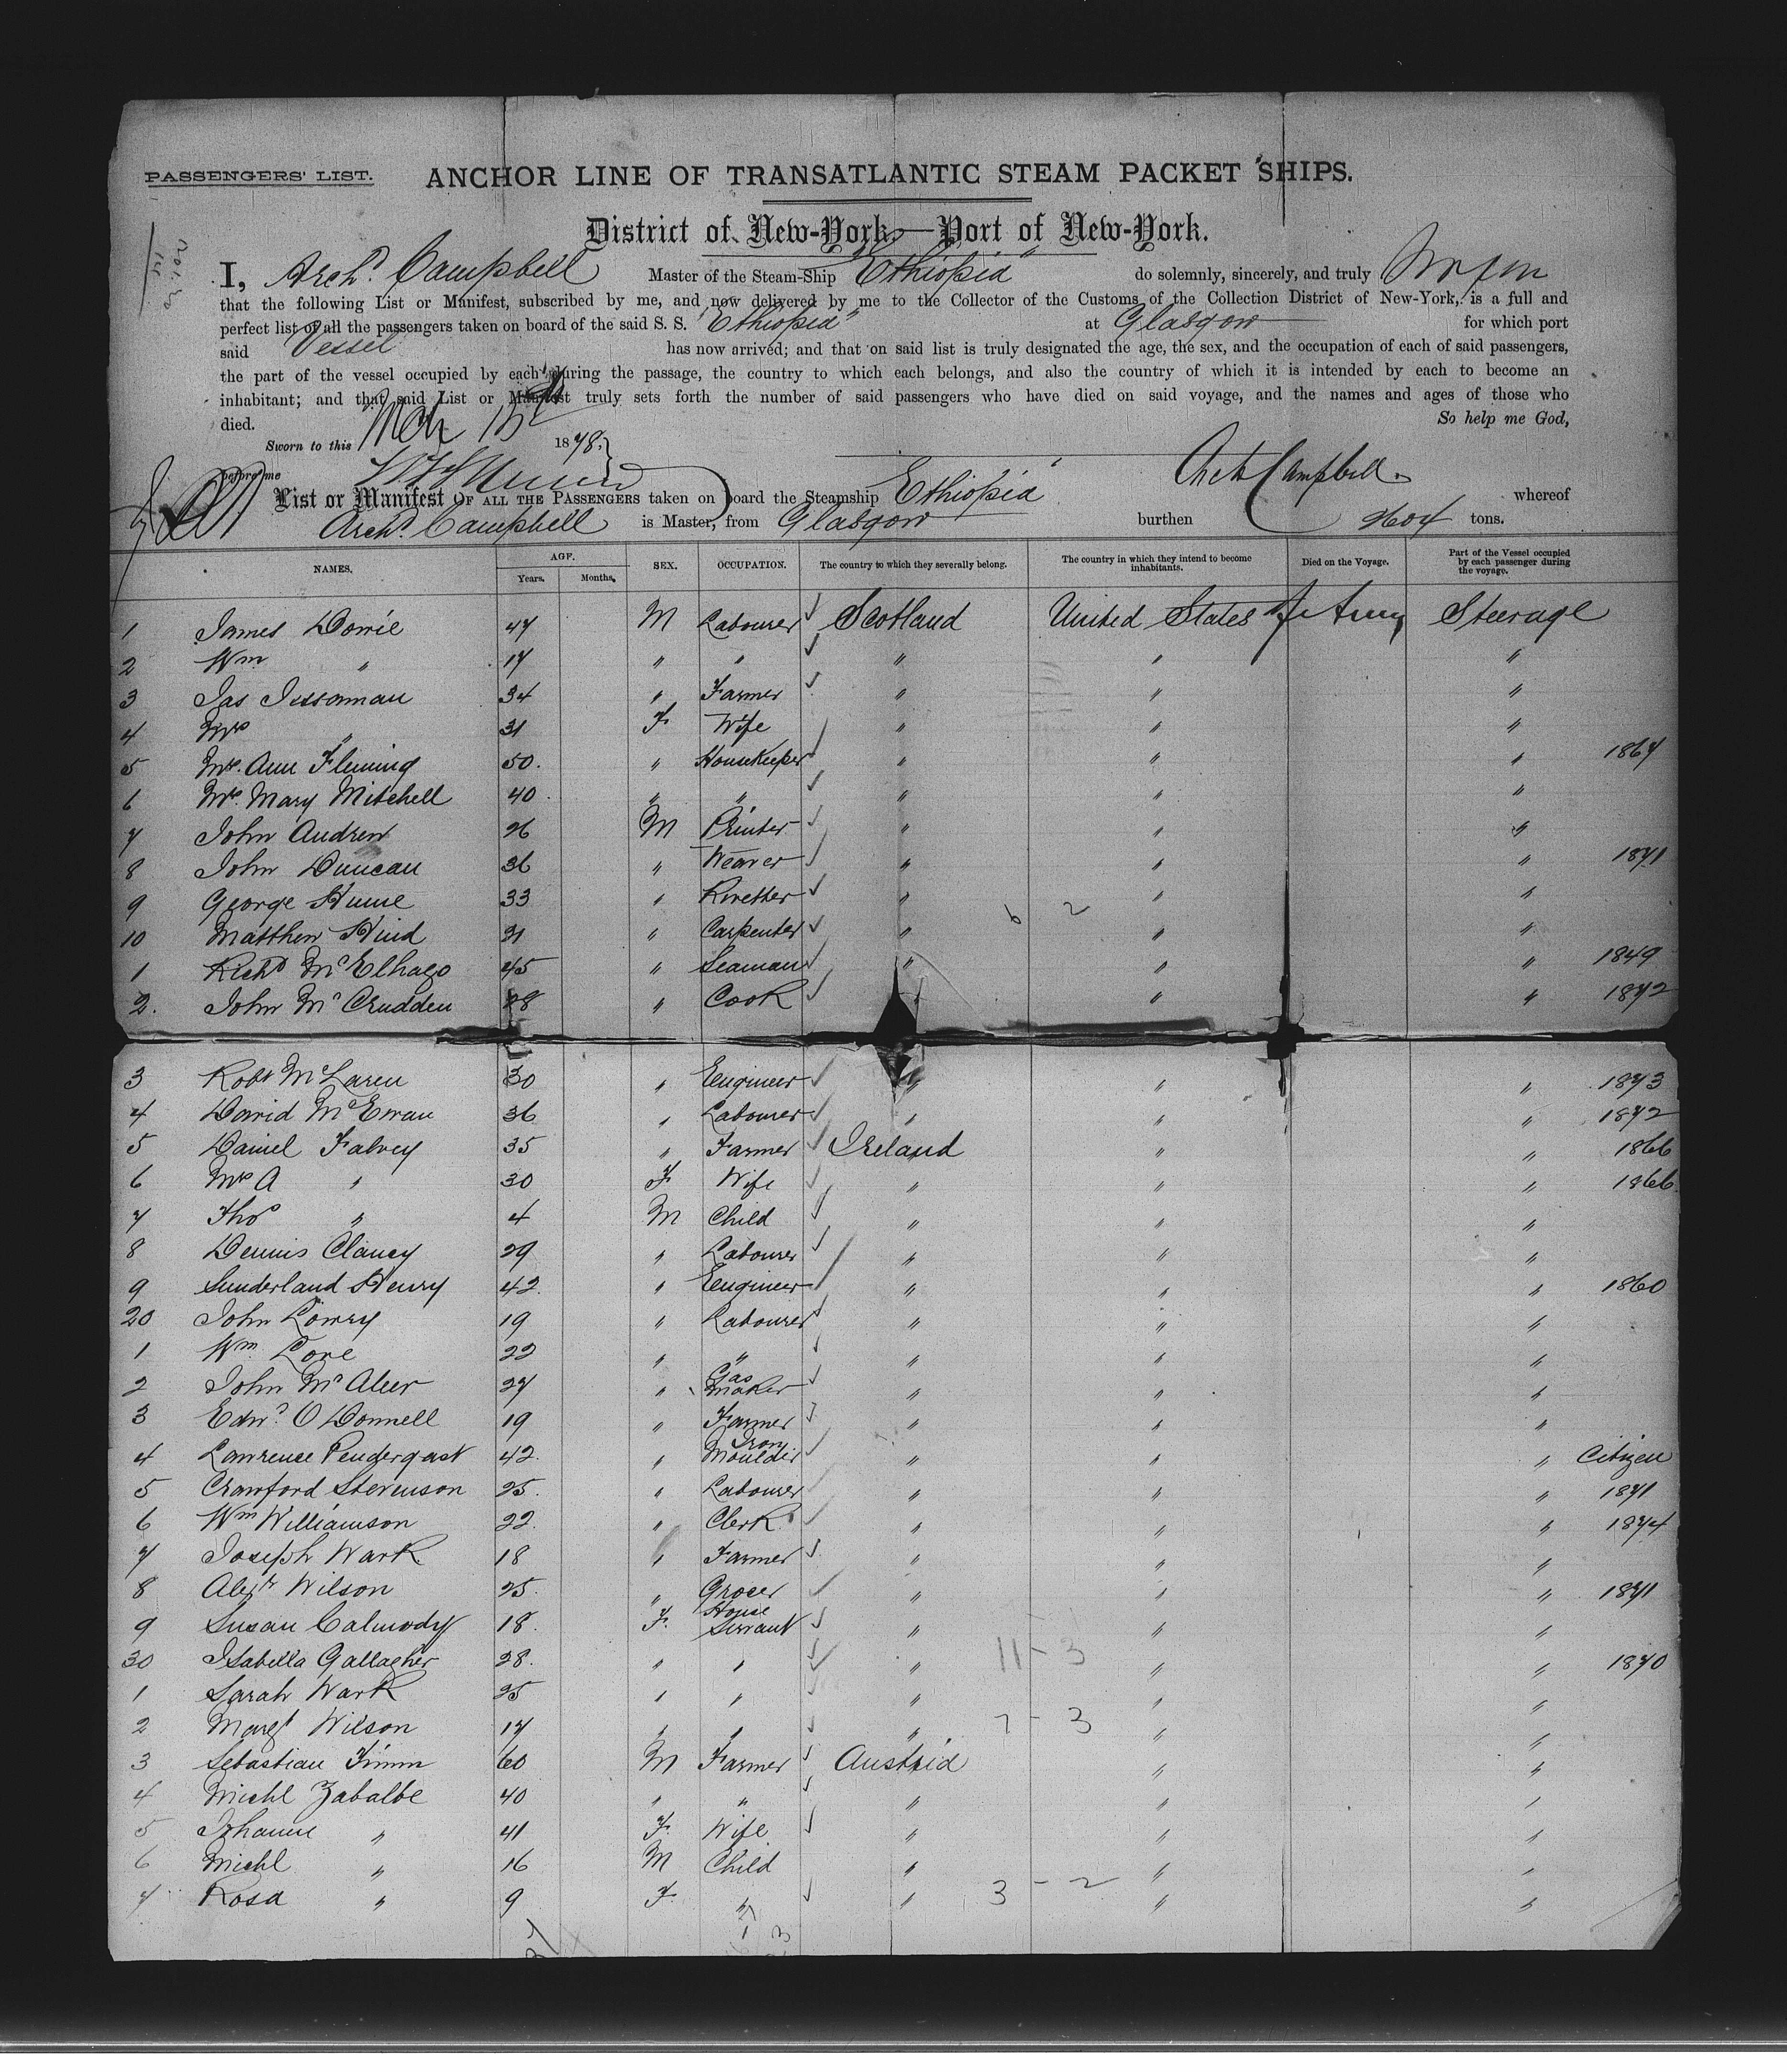 PASSENGERS' LIST.
ANCHOR LINE OF TRANSATLANTIC STEAM PACKET SHIPS.
District of New-York.—Port of New-York.
I, Archd. Campbell Master of the Steam-Ship "Ethiopia" do solemnly, sincerely, and truly
that the following List or Manifest, subscribed by me, and now delivered by me to the Collector of the Customs of the Collection District of New-York, is a full and
perfect list of all the passengers taken on board of the said S. S. "Ethiopia" at Glasgow for which port
said Vessel has now arrived; and that on said list is truly designated the age, the sex, and the occupation of each of said passengers,
the part of the vessel occupied by each during the passage, the country to which each belongs, and also the country of which it is intended by each to become an
inhabitant; and that said List or Manifest truly sets forth the number of said passengers who have died on said voyage, and the names and ages of those who
died. So help me God,
Sworn to this Mch 1878.
before me Arch Campbell
List or Manifest OF ALL THE PASSENGERS taken on board the Steamship Ethiopia whereof
Archd. Campbell is Master, from Glasgow burthen 2604 tons.
NAMES. AGE. Years. Months. SEX. OCCUPATION. The country to which they severally belong. The country in which they intend to become inhabitants. Died on the Voyage. Part of the Vessel occupied by each passenger during the voyage.
1 James Dowie 47 M Labourer Scotland United States Steerage
2 Wm " 17 " " " " "
3 Jas Jissamau 34 " Farmer " " "
4 Mrs " 31 F Wife " " "
5 Mrs. Ann Fleming 50. " Housekeeper " " " 1867
6 Mrs. Mary Mitchell 40. " " " " "
7 John Andrew 26 M Printer " " "
8 John Duncan 36 " Weaver " " " 1871
9 George Hume 33 " Rivetter " " "
10 Matthew Hind 21 " Carpenter " " "
6 2
1 Richd McElhago 45 " Seaman " " " 1849
2. John McCrudden 28 " Cook " " " 1872
3 Robt McLaren 30 " Engineer " " " 1873
4 David McEwan 36 " Labourer " " " 1872
5 Daniel Falvey 35 " Farmer Ireland " " 1866
6 Mrs A " 30 F Wife " " " 1866
7 Thos " 4 M Child " " "
8 Dennis Clancy 29 " Labourer " " "
9 Sunderland Henry 42. " Engineer " " " 1860
20 John Lowry 19 " Labourer " " "
1 Wm Love 22 " " " " "
2 John McAleer 27 " Gas Maker " " "
3 Edwd. O Donnell 19 " Farmer " " "
4 Lawrence Pendergast 42. " Iron Moulder " " " Citizen
5 Crawford Stevenson 25. " Labourer " " " 1871
6 Wm Williamson 22. " Clerk " " " 1874
7 Joseph Wark 18 " Farmer " " "
8 Alexr Wilson 25. " Grocer " " " 1871
9 Susan Calmody 18. F. House Servant " " "
11 - 3
30 Isabella Gallagher 28. " " " " " 1870
1 Sarah Wark 25 " " " " "
2 Margt Wilson 17 " " " " "
7 - 3
3 Sebastian Timm 60 M Farmer Austria " "
4 Michl Zabalbe 40 " " " " "
5 Johanne " 41 F. Wife " " "
6 Michl " 16 M Child " " "
7 Rosa " 9 F. " " " "
3 - 2